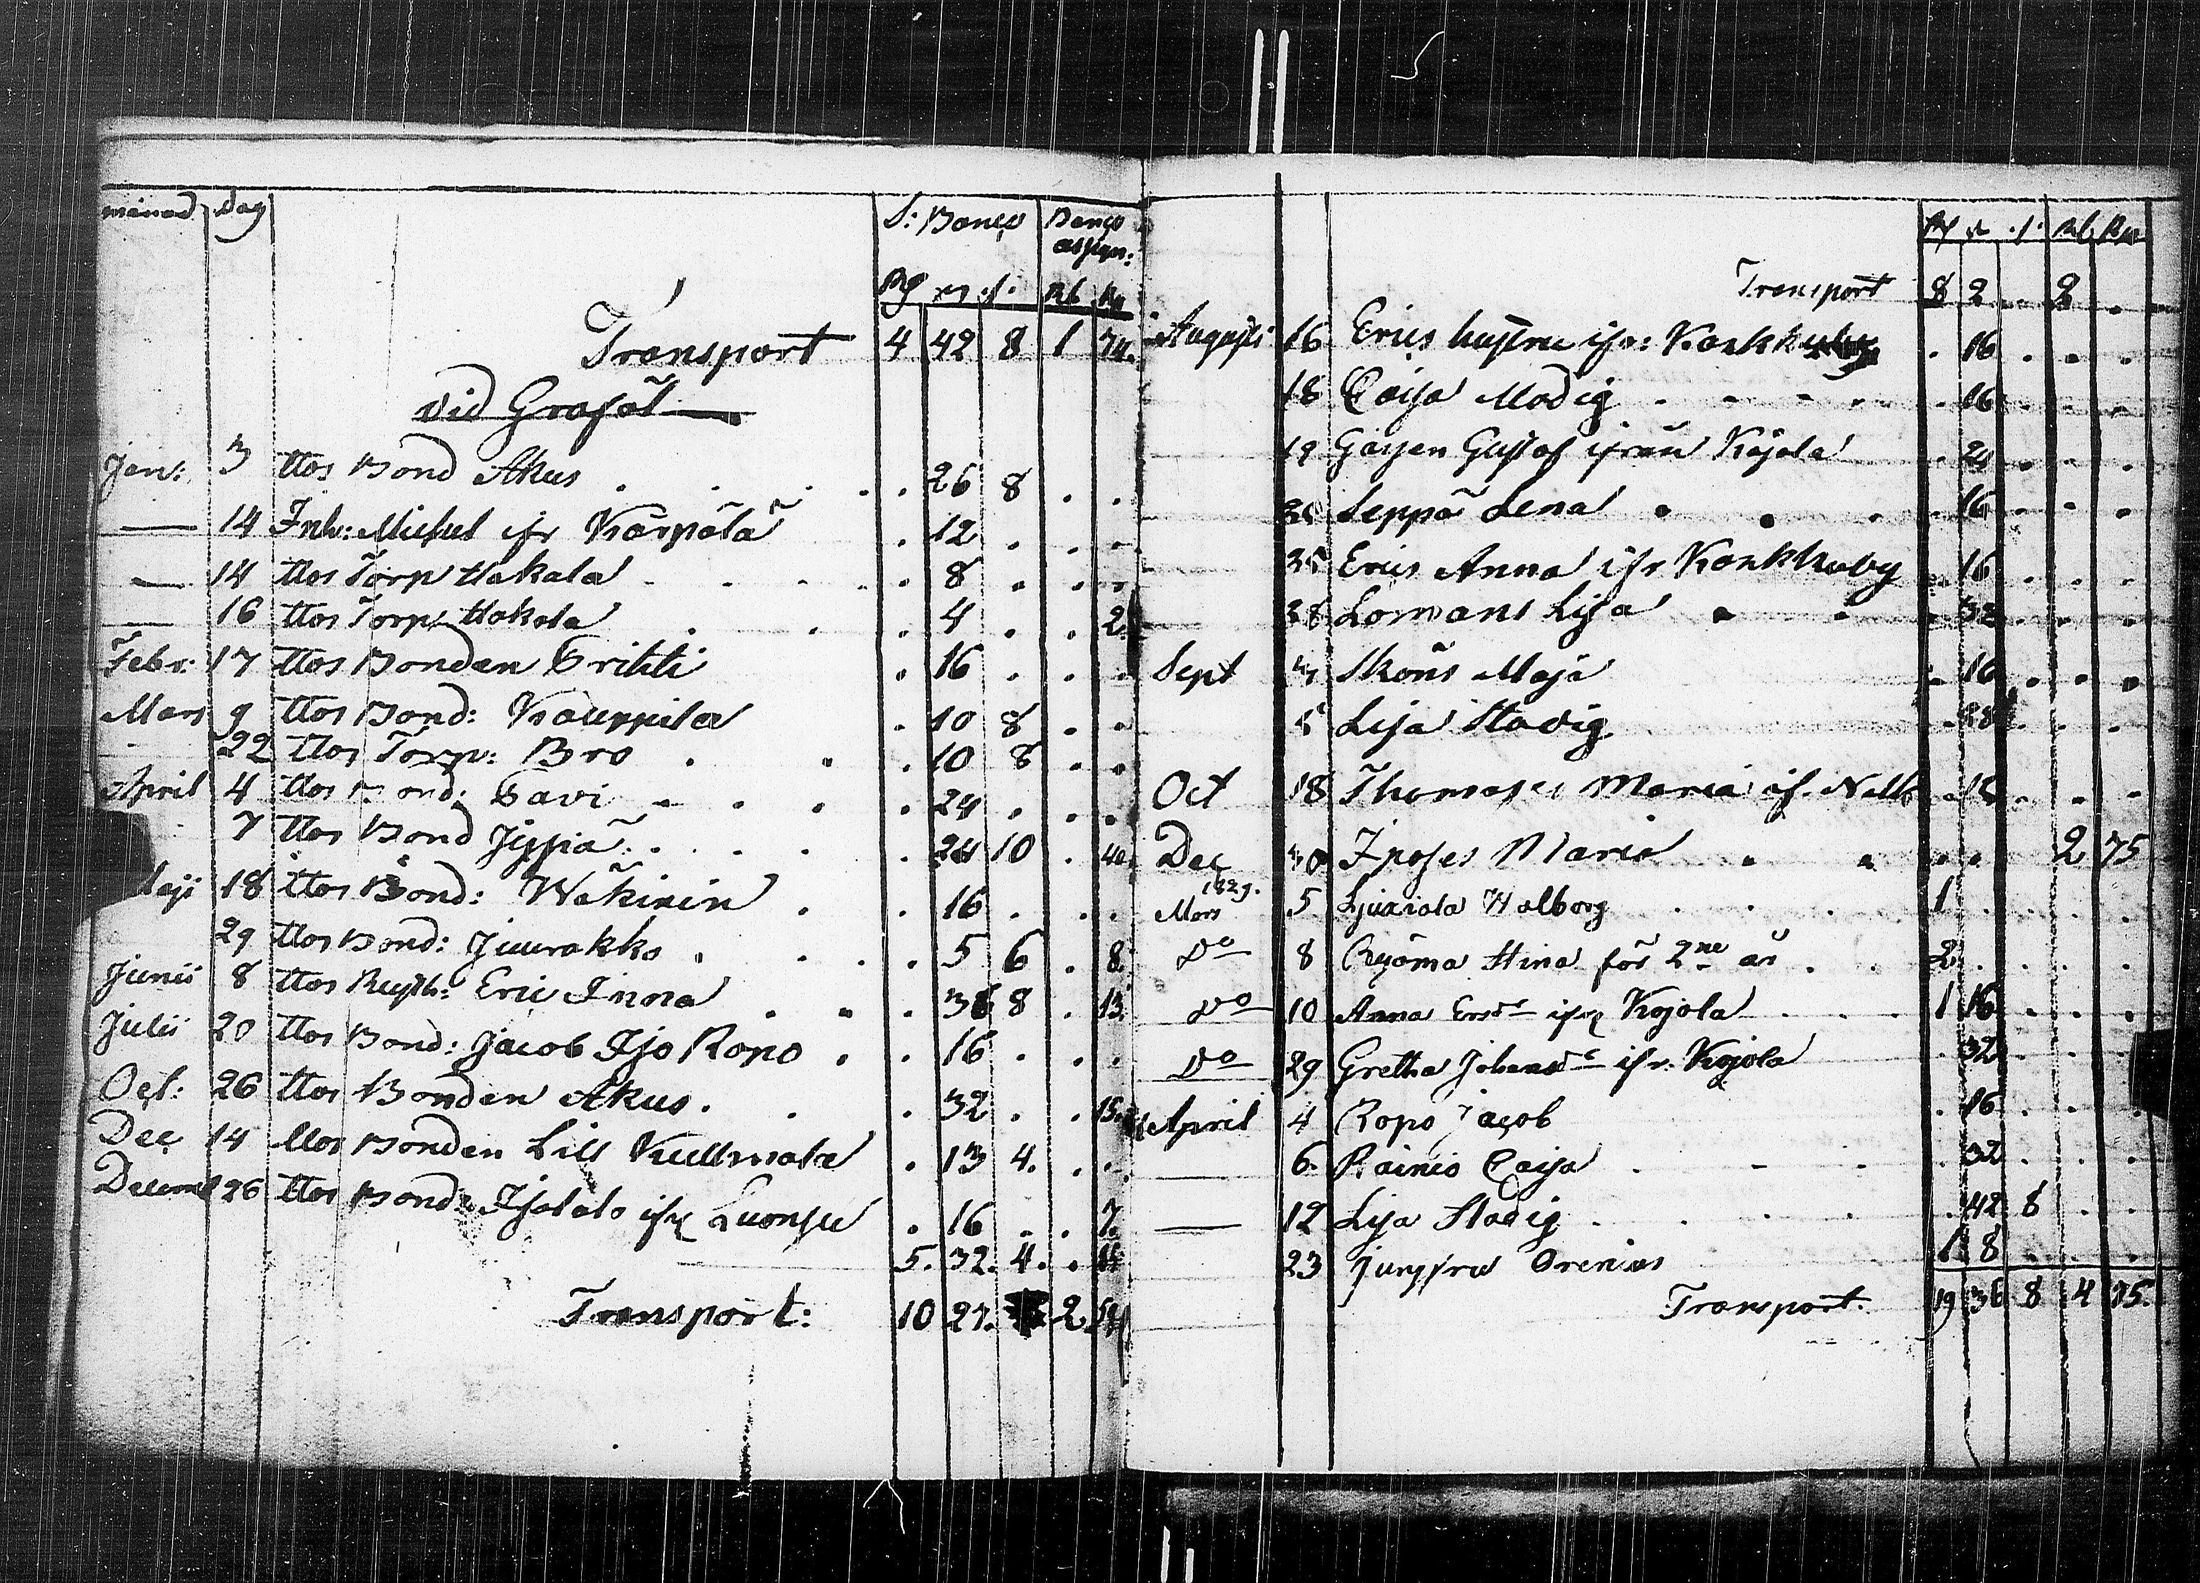 månad Dag S: Banco Banco assign:
Rd s .f. Rb. Kop
Transport 4 42 8 1 74.
vid Grafööl
Jan: 3 Hos Bond Akus . . . . 26 8 . .
— 14 Inh: Michel ifr Karpola . 12 . . .
— 14 Hos Torp Hakala . 8 . . .
— 16 Hos Torp Hakola . 4 . . 2.
Febr: 17 Hos Bonden Erikki . 16 . . .
Mars 9 Hos Bond: Kauppila . 10 8 . .
22 Hos Torp: Bro . . . 10 8 . .
April 4 Hos Bond: Pavi . . . 24 . . .
7 Hos Bond Jyppiä . . . . 24 10 . 40.
Maji 18 Hos Bond: Wäkinin . . 16 . . .
29 Hos Bond: Juurakko . . . . 5 6 . 8.
Junii 8 Hos Eric Inna . . . 36 8 . 13.
Julii 20 Hos Bond: Jacob Ropo . . 16 . . .
Oct: 26 Hos Bonden Akus . . . 32 . . 15.
Dec 14 Hos Bonden Lill Kullmola . 13 4. . .
Decemb 26 Hos Bond: ifr Luonsu . 16 . . 7.
5. 32. 4. .
Transport: 10 27. 2
Transport 8 2 . 2 .
Augusti 16 Erics hustru ifr: Konkkuby . 16 . . .
18 Caisa Modig . . . . . 16 . . .
19 Gustaf ifrån Kojola . 24 . . .
Seppä Lena . . . . 16 . . .
25 Erics Anna ifr Konkkuby . 16 . . .
28 Lomans Lisa . . . 32 . . .
Sept Sköns Maja . 16 . . .
5 Lisa Stadig . 28 . . .
Oct 18 Thomases Maria if.
Dec 30 Maria . . . . 2 75
1829.
Mars 5 Walborg . . . 1 . . . .
Do 8 Ryöma Stina för 2ne år . . 2 . . . .
Do 10 Anna Ersdr ifr Kojola . . . 1 16 . . .
Do 29 Gretha Johansdr ifr. Kojola . 32 . . .
April 4 Ropo Jacob . 16 . . .
— 6. Rainio Caisa . . . . 32 . . .
— 12 Lisa Stadig . . . . . 42 8 . .
23 Jungfru Orenius 1 8 . . .
Transport. 19 36 8 4 75.